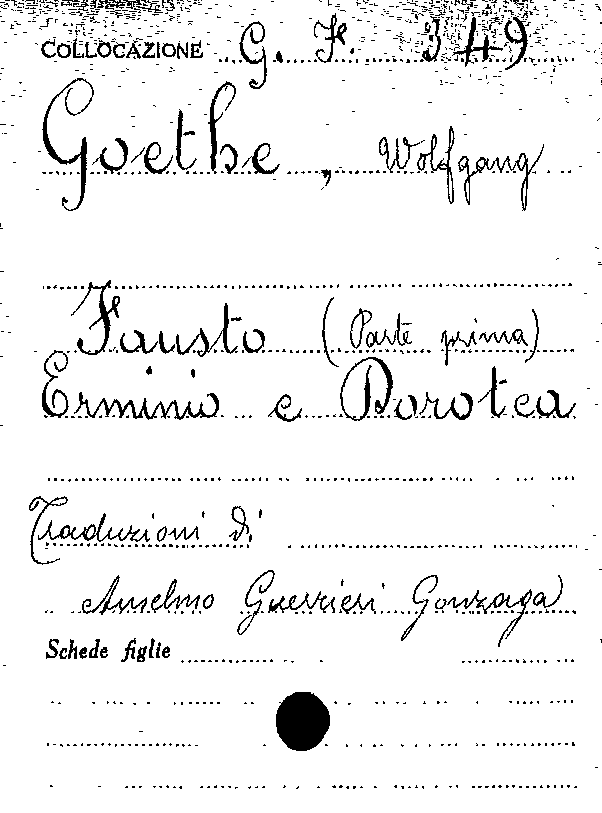 COLLOCAZIONE G. F. 349
Goethe, Wolfgang
Fausto (Parte prima)
Erminio e Dorotea
Traduzioni di
Anselmo Guerrieri Gonzaga
Schede figlie